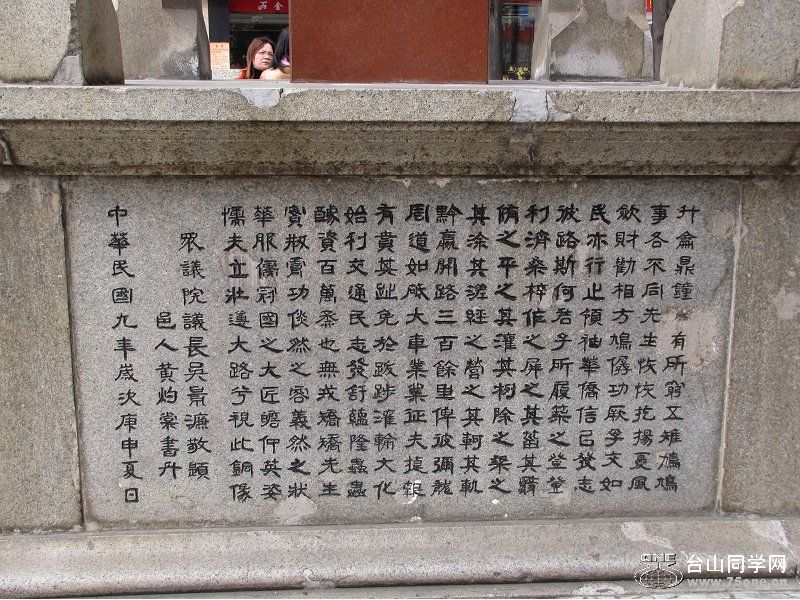 升龠鼎 有所窮又雉鳩鳩
事各不同先生恢恢扢揚憂風
斂財勸相方鳩僝功厥孚交如
民亦行止領袖華僑信己發志
彼路斯何君子所履築之登登
利濟桑梓作之屏之其菑其翳
脩之平之其灌其栵除之梁之
其涂其 經之營之其軻其軌
黔嬴開路三百餘里俾彼彌龍
周道如砥大車業業征夫捷
有賁其趾免於跋涉 輪大化
始利交通民志發舒蘊隆蟲蟲
醵資百萬 也無戎矯矯先生
實 功倓然之容義然之狀
華服儒冠國之大匠瞻仰英姿
懦夫立壯遵大路兮視此銅像
眾議院議長吳景濂敬題
邑人黃灼棠書丹
中華民國九年歲次庚申夏日
ONE 台山同学网
www.75one.cn